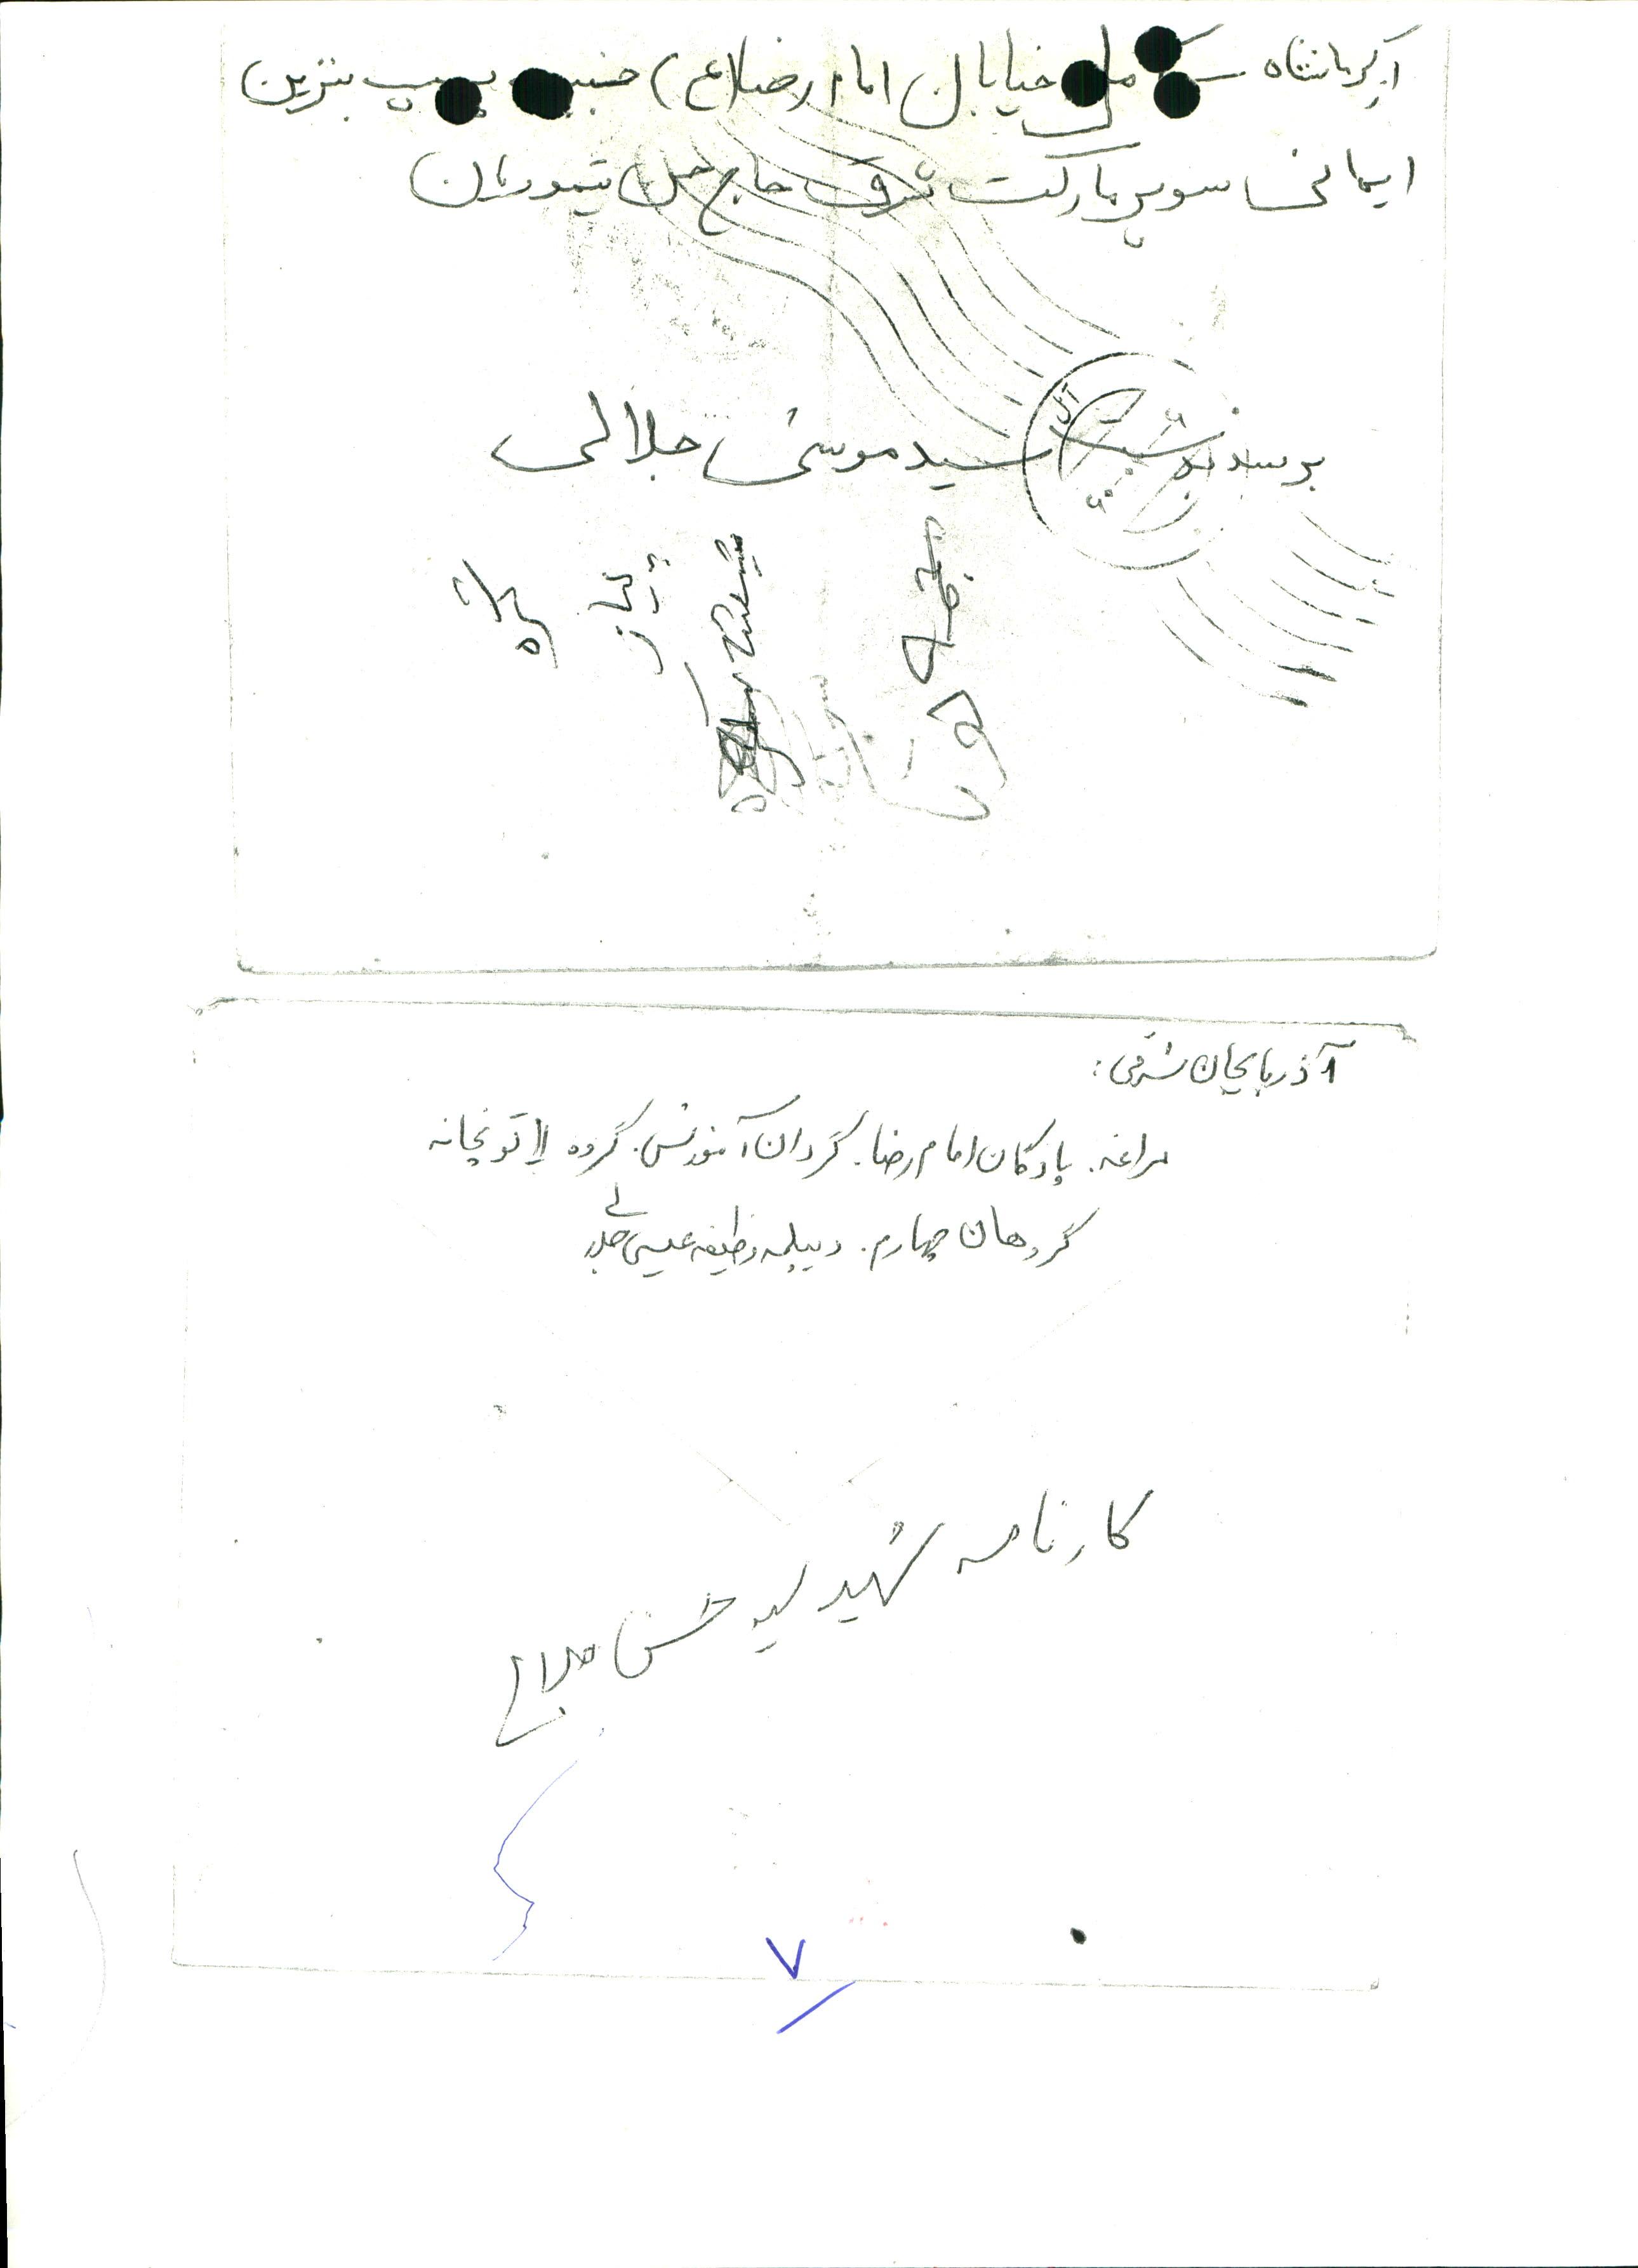 آ. کرمانشاه خیابان امام رضا (ع) جنب پمپ بنزین
ایمانی سوپر مارکت شرف حاج علی تیموریان
برسد به دست سید موسی جلالی
آذربایجان شرقی:
مراغه. پادگان امام رضا. گردان آموزش. گروه ۱۱ توپخانه
گروهان چهارم. دیپلمه وظیفه عیسی جلالی
کارنامه شهید سید حسن جلالی
۷